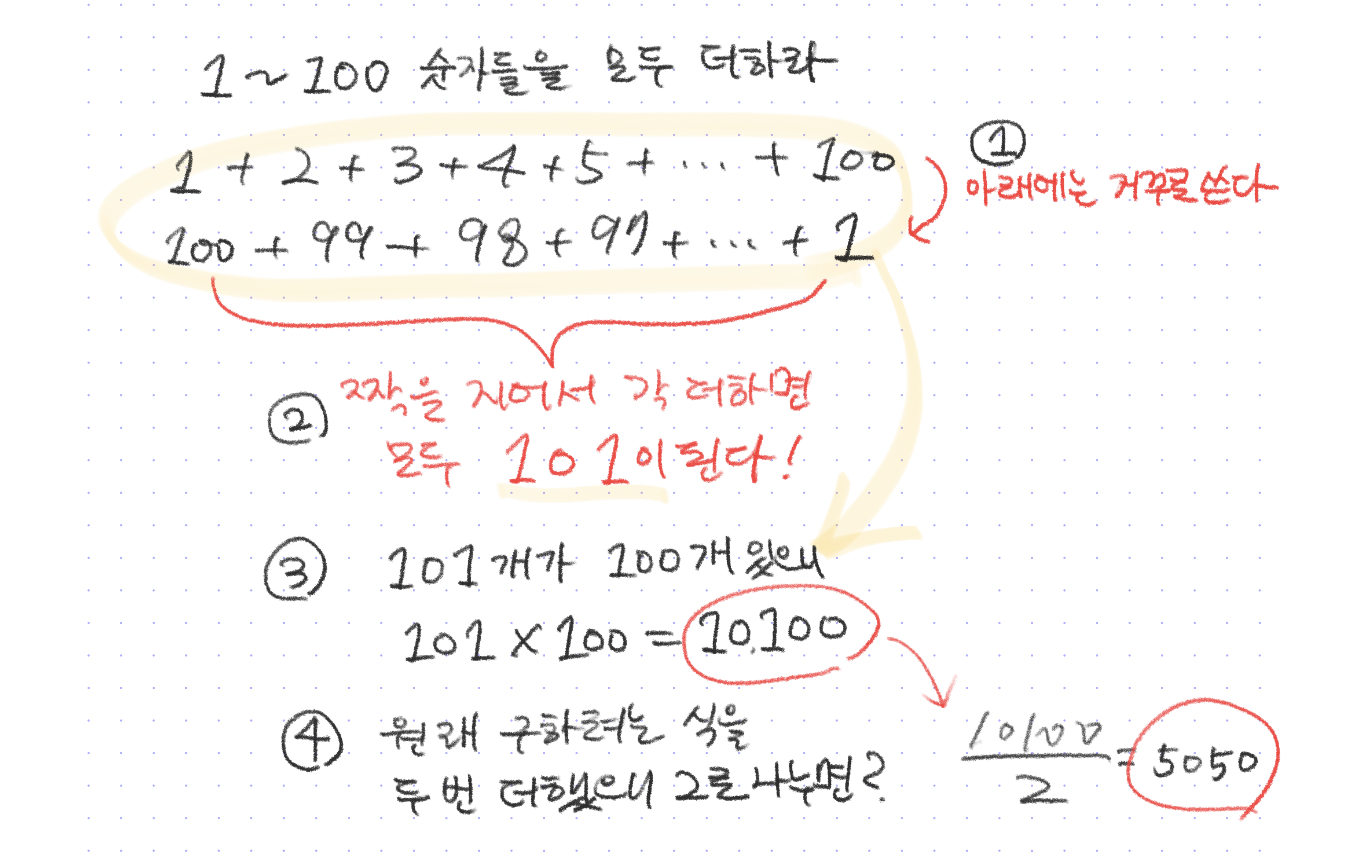 1 ~ 100 숫자들을 모두 더하라
1 + 2 + 3 + 4 + 5 + ... + 100
①
아래에는 거꾸로 쓴다
100 + 99 + 98 + 97 + ... + 1
② 짝을 지어서 각 더하면
모두 101이 된다!
③ 101개가 100개 있으니
101 × 100 = 10,100
④ 원래 구하려는 식을
두 번 더했으니 2로 나누면?
10100
2
= 5050